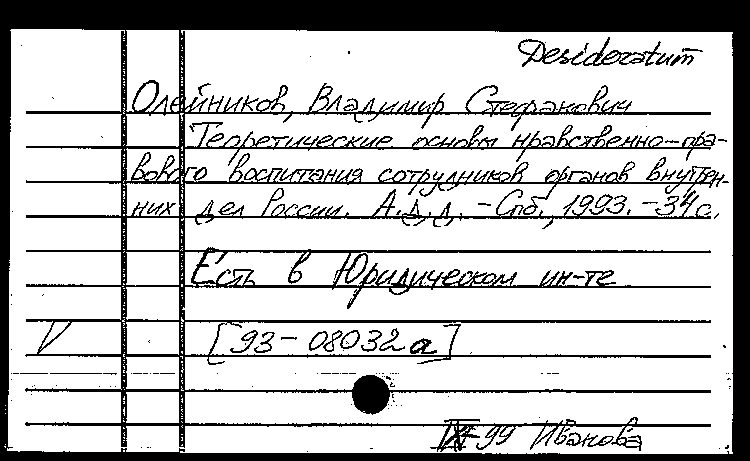 Desideratum
Олейников, Владимир Стефанович
Теоретические основы нравственно-пра-
вового воспитания сотрудников органов внутрен-
них дел России. А.д.д. - Спб., 1993. - 34 с.
Есть в Юридическом ин-те
V [93-08032а]
99 Иванова